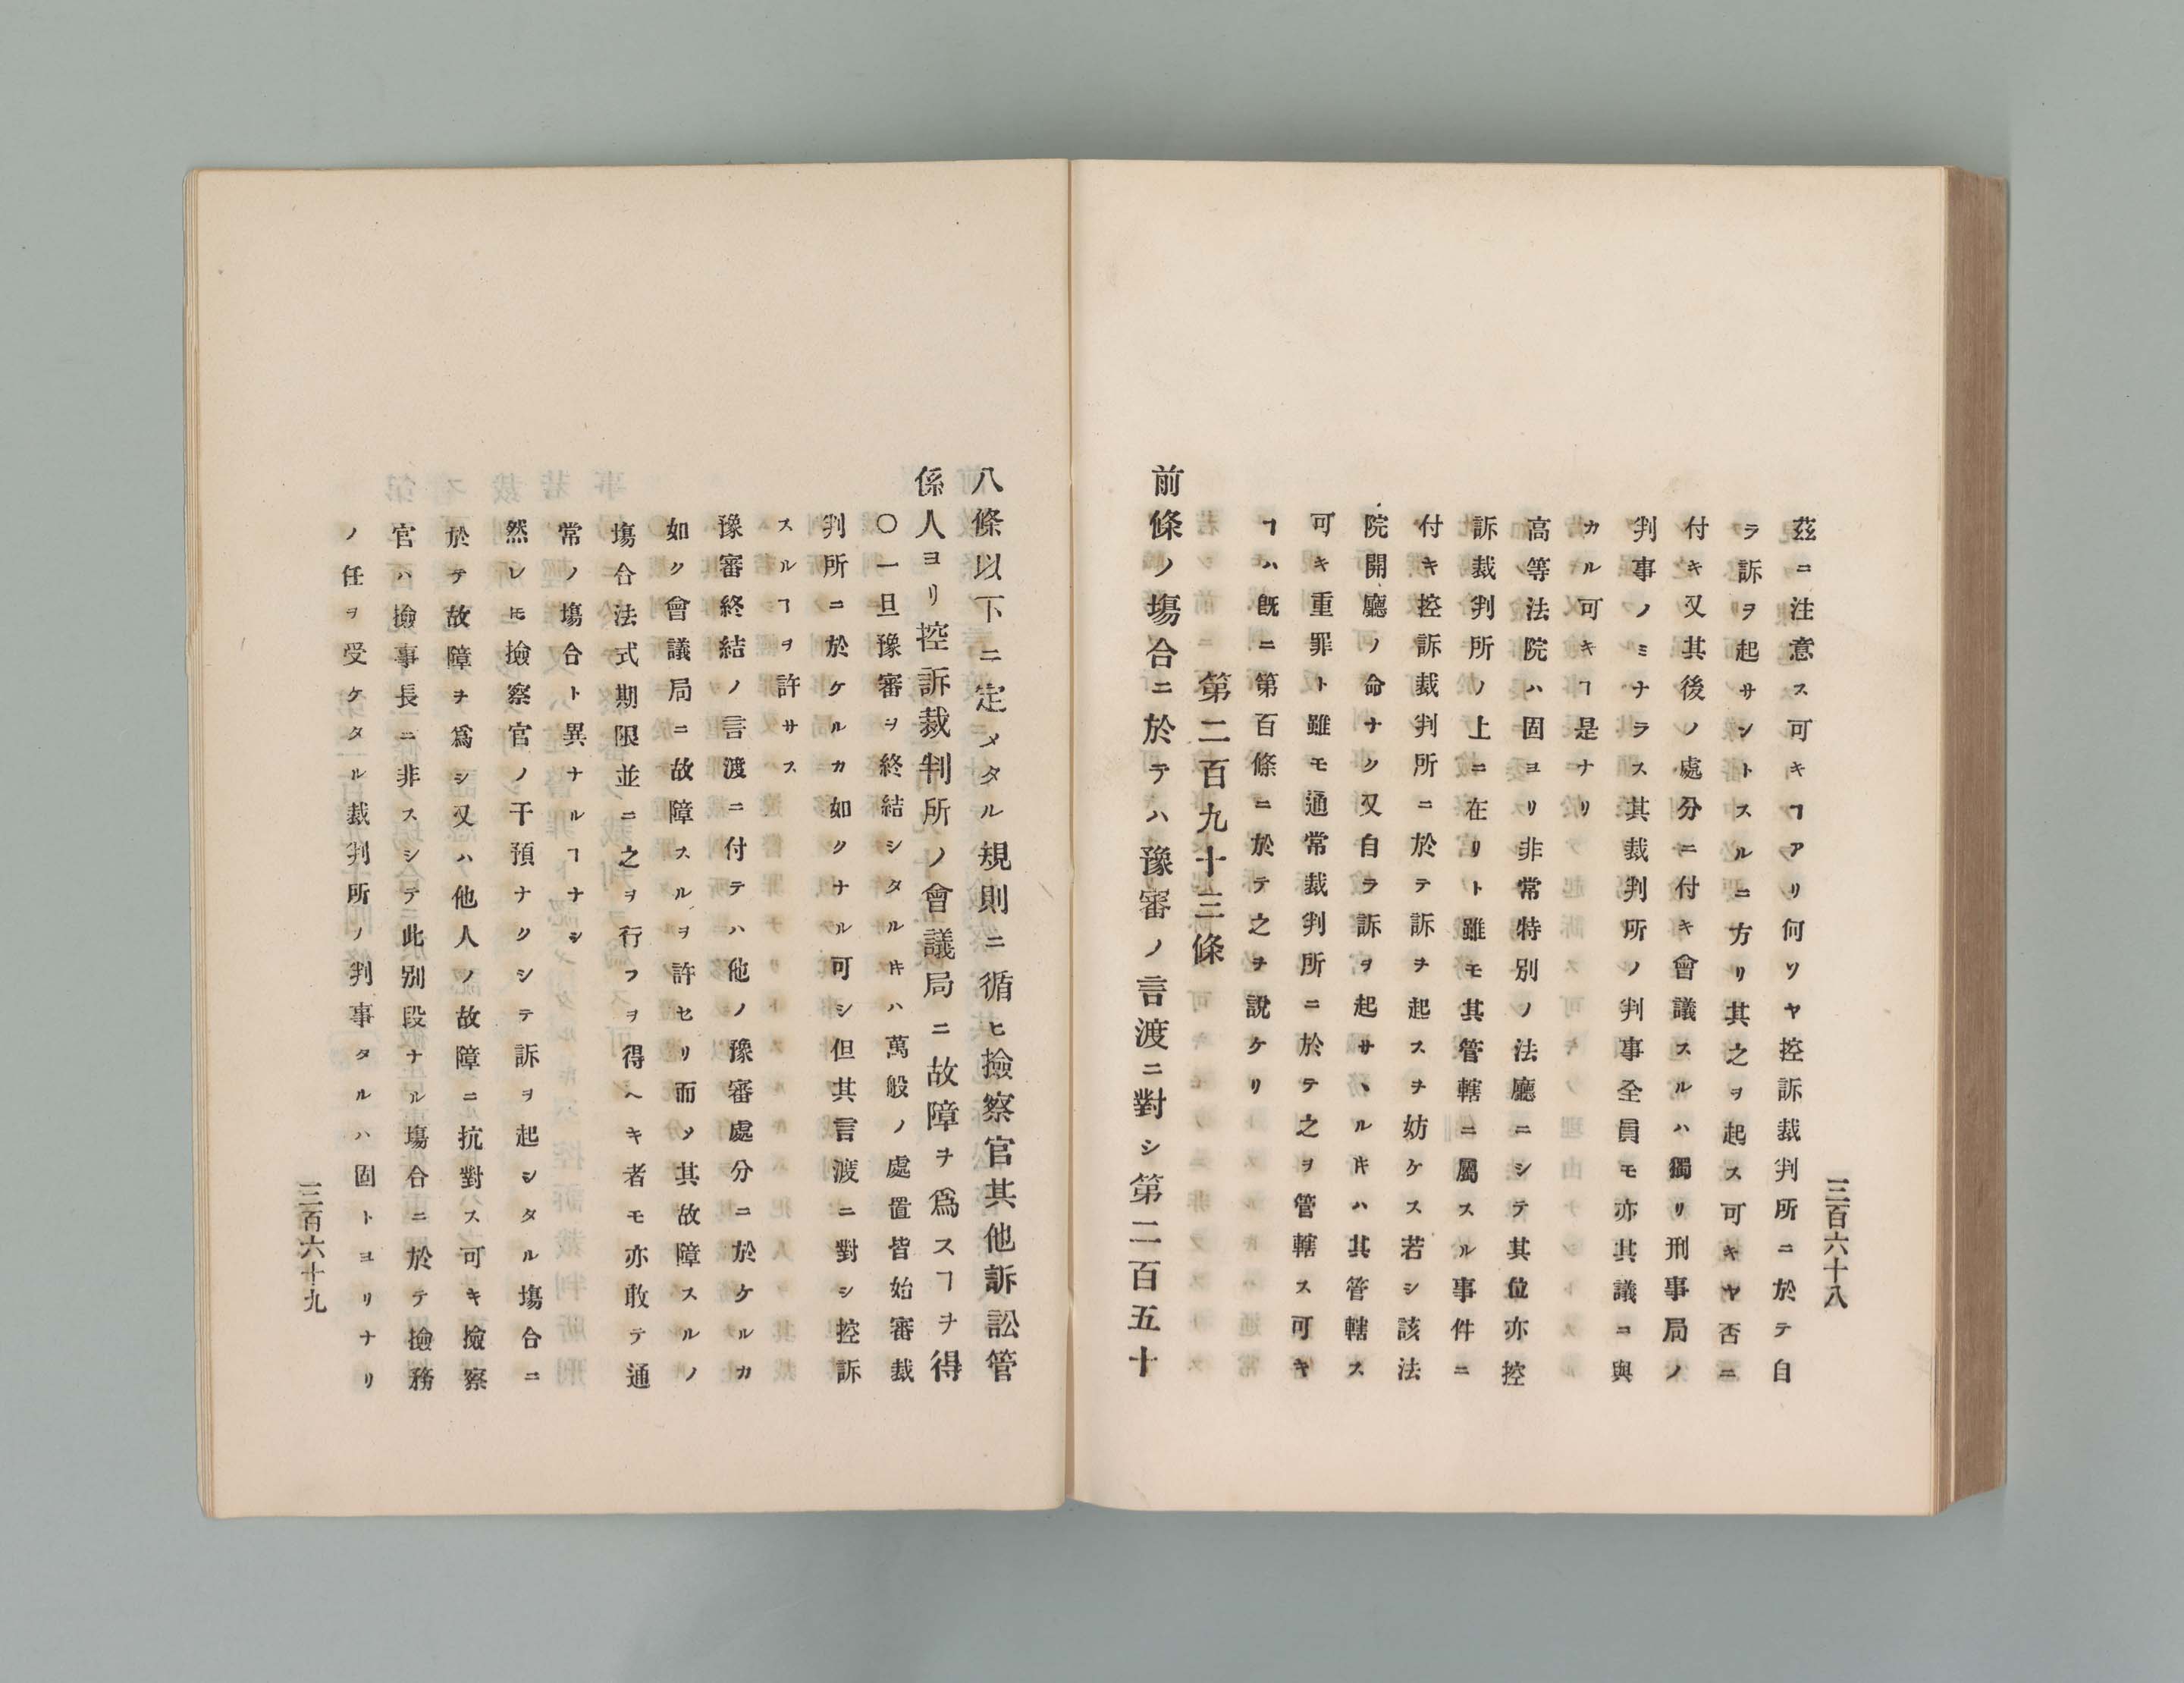 三百六十八
茲ニ注意ス可キヿアリ何ソヤ控訴裁判所ニ於テ自
ラ訴ヲ起サントスルニ方リ其之ヲ起ス可キヤ否ニ
付キ又其後ノ處分ニ付キ會議スルハ獨リ刑事局ノ
判事ノミナラス其裁判所ノ判事全員モ亦其議ニ與
カル可キヿ是ナリ
高等法院ハ固ヨリ非常特別ノ法廳ニシテ其位亦控
訴裁判所ノ上ニ在リト雖モ其管轄ニ屬スル事件ニ
付キ控訴裁判所ニ於テ訴ヲ起スヲ妨ケス若シ該法
院開廳ノ命ナク又自ラ訴ヲ起サヽルㇳキハ其管轄ス
可キ重罪ト雖モ通常裁判所ニ於テ之ヲ管轄ス可キ
ヿハ既ニ第百條ニ於テ之ヲ說ケリ
第二百九十三條
前條ノ塲合ニ於テハ豫審ノ言渡ニ對シ第二百五十
八條以下ニ定メタル規則ニ循ヒ撿察官其他訴訟管
係人ヨリ控訴裁判所ノ會議局ニ故障ヲ爲スヿヲ得
〇一旦豫審ヲ終結シタルㇳキハ萬般ノ處置皆始審裁
判所ニ於ケルカ如クナル可シ但其言渡ニ對シ控訴
スルヿヲ許サス
豫審終結ノ言渡ニ付テハ他ノ豫審處分ニ於ケルカ
如ク會議局ニ故障スルヲ許セリ而メ其故障スルノ
塲合法式期限並ニ之ヲ行フヲ得ヘキ者モ亦敢テ通
常ノ塲合ト異ナルヿナシ
然レㇳモ撿察官ノ干預ナクシテ訴ヲ起シタル塲合ニ
於テ故障ヲ爲シ又ハ他人ノ故障ニ抗對ス可キ撿察
官ハ撿事長ニ非スシテ此別段ナル塲合ニ於テ撿務
ノ任ヲ受ケタル裁判所ノ判事タルハ固トヨリナリ
三百六十九